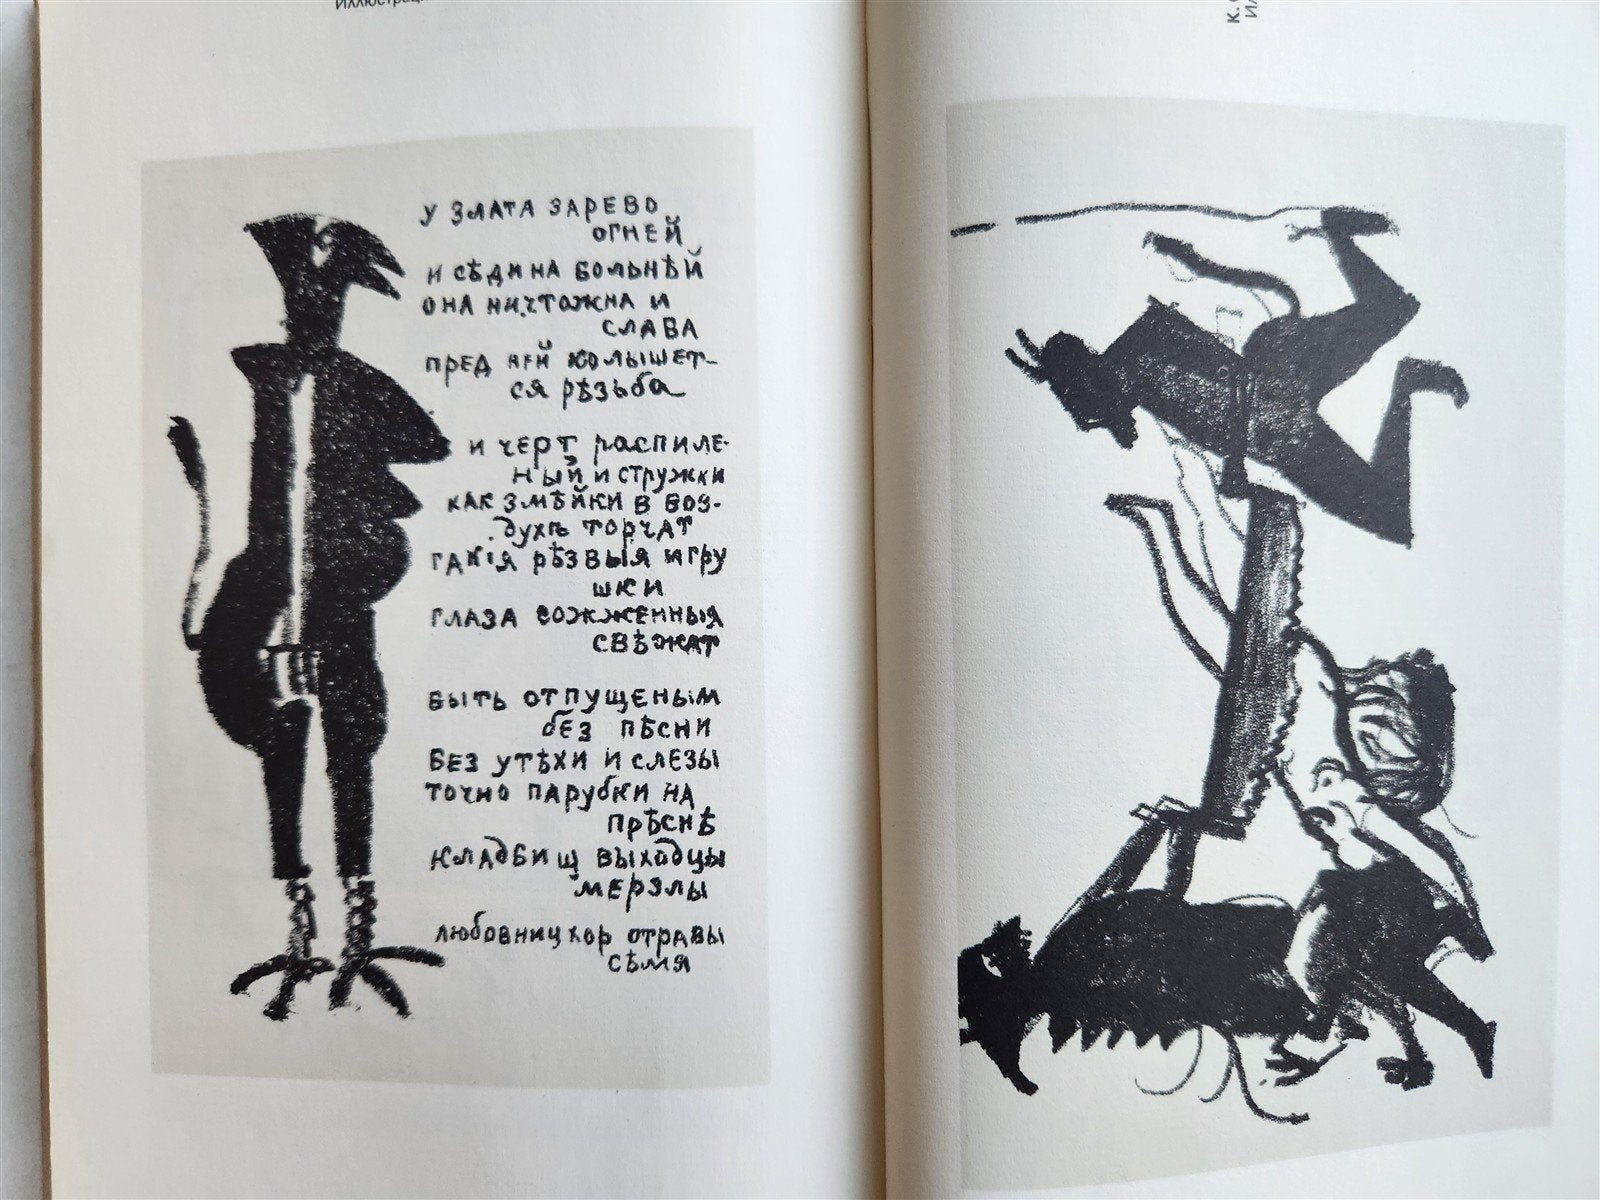 У ЗЛАТА ЗАРЕВО
ОГНЕЙ
И СѢДИНА БОЛЬНѢЙ
ОНА НИЧТОЖНА И
СЛАВА
ПРЕД НЕЙ КОЛЫШЕТ-
СЯ РѢЗЬБА
И ЧЕРТ РАСПИЛЕ-
НЫЙ И СТРУЖКИ
КАК ЗМѢЙКИ В ВОЗ-
ДУХѢ ТОРЧАТ
ТАКІЯ РѢЗВЫЯ ИГРУ
ШКИ
ГЛАЗА СОЖЖЕННЫЯ
СВѢЖАТ
БЫТЬ ОТПУЩЕНЫМ
БЕЗ ПѢСНИ
БЕЗ УТѢХИ И СЛЕЗЫ
ТОЧНО ПАРУБКИ НА
ПРѢСНѢ
КЛАДБИЩ ВЫХОДЦЫ
МЕРЗЛЫ
ЛЮБОВНИЦ ХОР ОТРАВЫ
СѢМЯ
К.